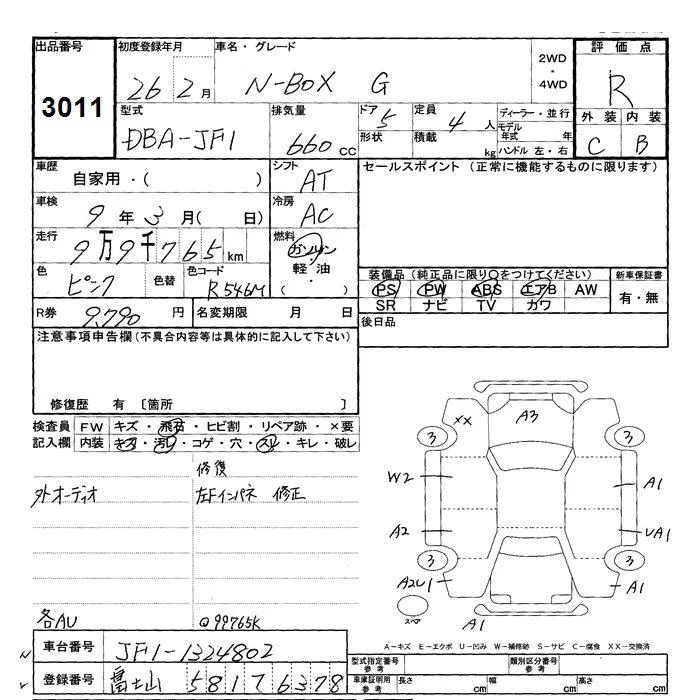 出品番号 3011
初度登録年月 26 2月
車名・グレード N-BOX G
2WD・4WD
評価点 R
外装 C 内装 B
型式 DBA-JF1
排気量 660cc
ドア 5 定員 4人
形状 積載 kg
ディーラー・並行
モデル年式 年
ハンドル 左・右
車歴 自家用・( )
シフト AT
セールスポイント (正常に機能するものに限ります)
車検 9年3月( 日)
冷房 AC
走行 9万9千765km
燃料 ガソリン・軽油・( )
色 ピンク 色替 色コード R546M
装備品 (純正品に限り○をつけてください)
PS PW ABS エアB AW
SR ナビ TV カワ
新車保証書 有・無
R券 9,790円 名変期限 月 日
後日品
注意事項申告欄(不具合内容等は具体的に記入して下さい)
修復歴 有 〔箇所 〕
検査員記入欄
FW キズ・飛石・ヒビ割・リペア跡・×要
内装 キズ・汚れ・コゲ・穴・スレ・キレ・破レ
修復
外オーディオ 左Fインパネ 修正
各AU @99765K
XX A3
3 3
W2 A1
A2 UA1
3 3
A2U1 A1
スペア A1
A-キズ E-エクボ U-凹み W-補修跡 S-サビ C-腐食 XX-交換済
車台番号 JF1-1324802
登録番号 富士山 581 7 6378
型式指定番号 参考 類別区分番号 参考
車庫証明用 参考 長さ cm 幅 cm 高さ cm